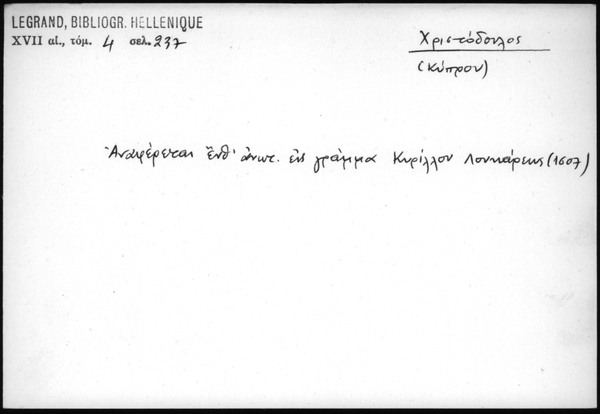 LEGRAND, BIBLIOGR. HELLENIQUE
XVII αἰ., τόμ. 4 σελ. 237
Χριστόδουλος
(Κύπρου)
Ἀναφέρεται ἔνθ' ἀνωτ. εἰς γράμμα Κυρίλλου Λουκάρεως (1607)